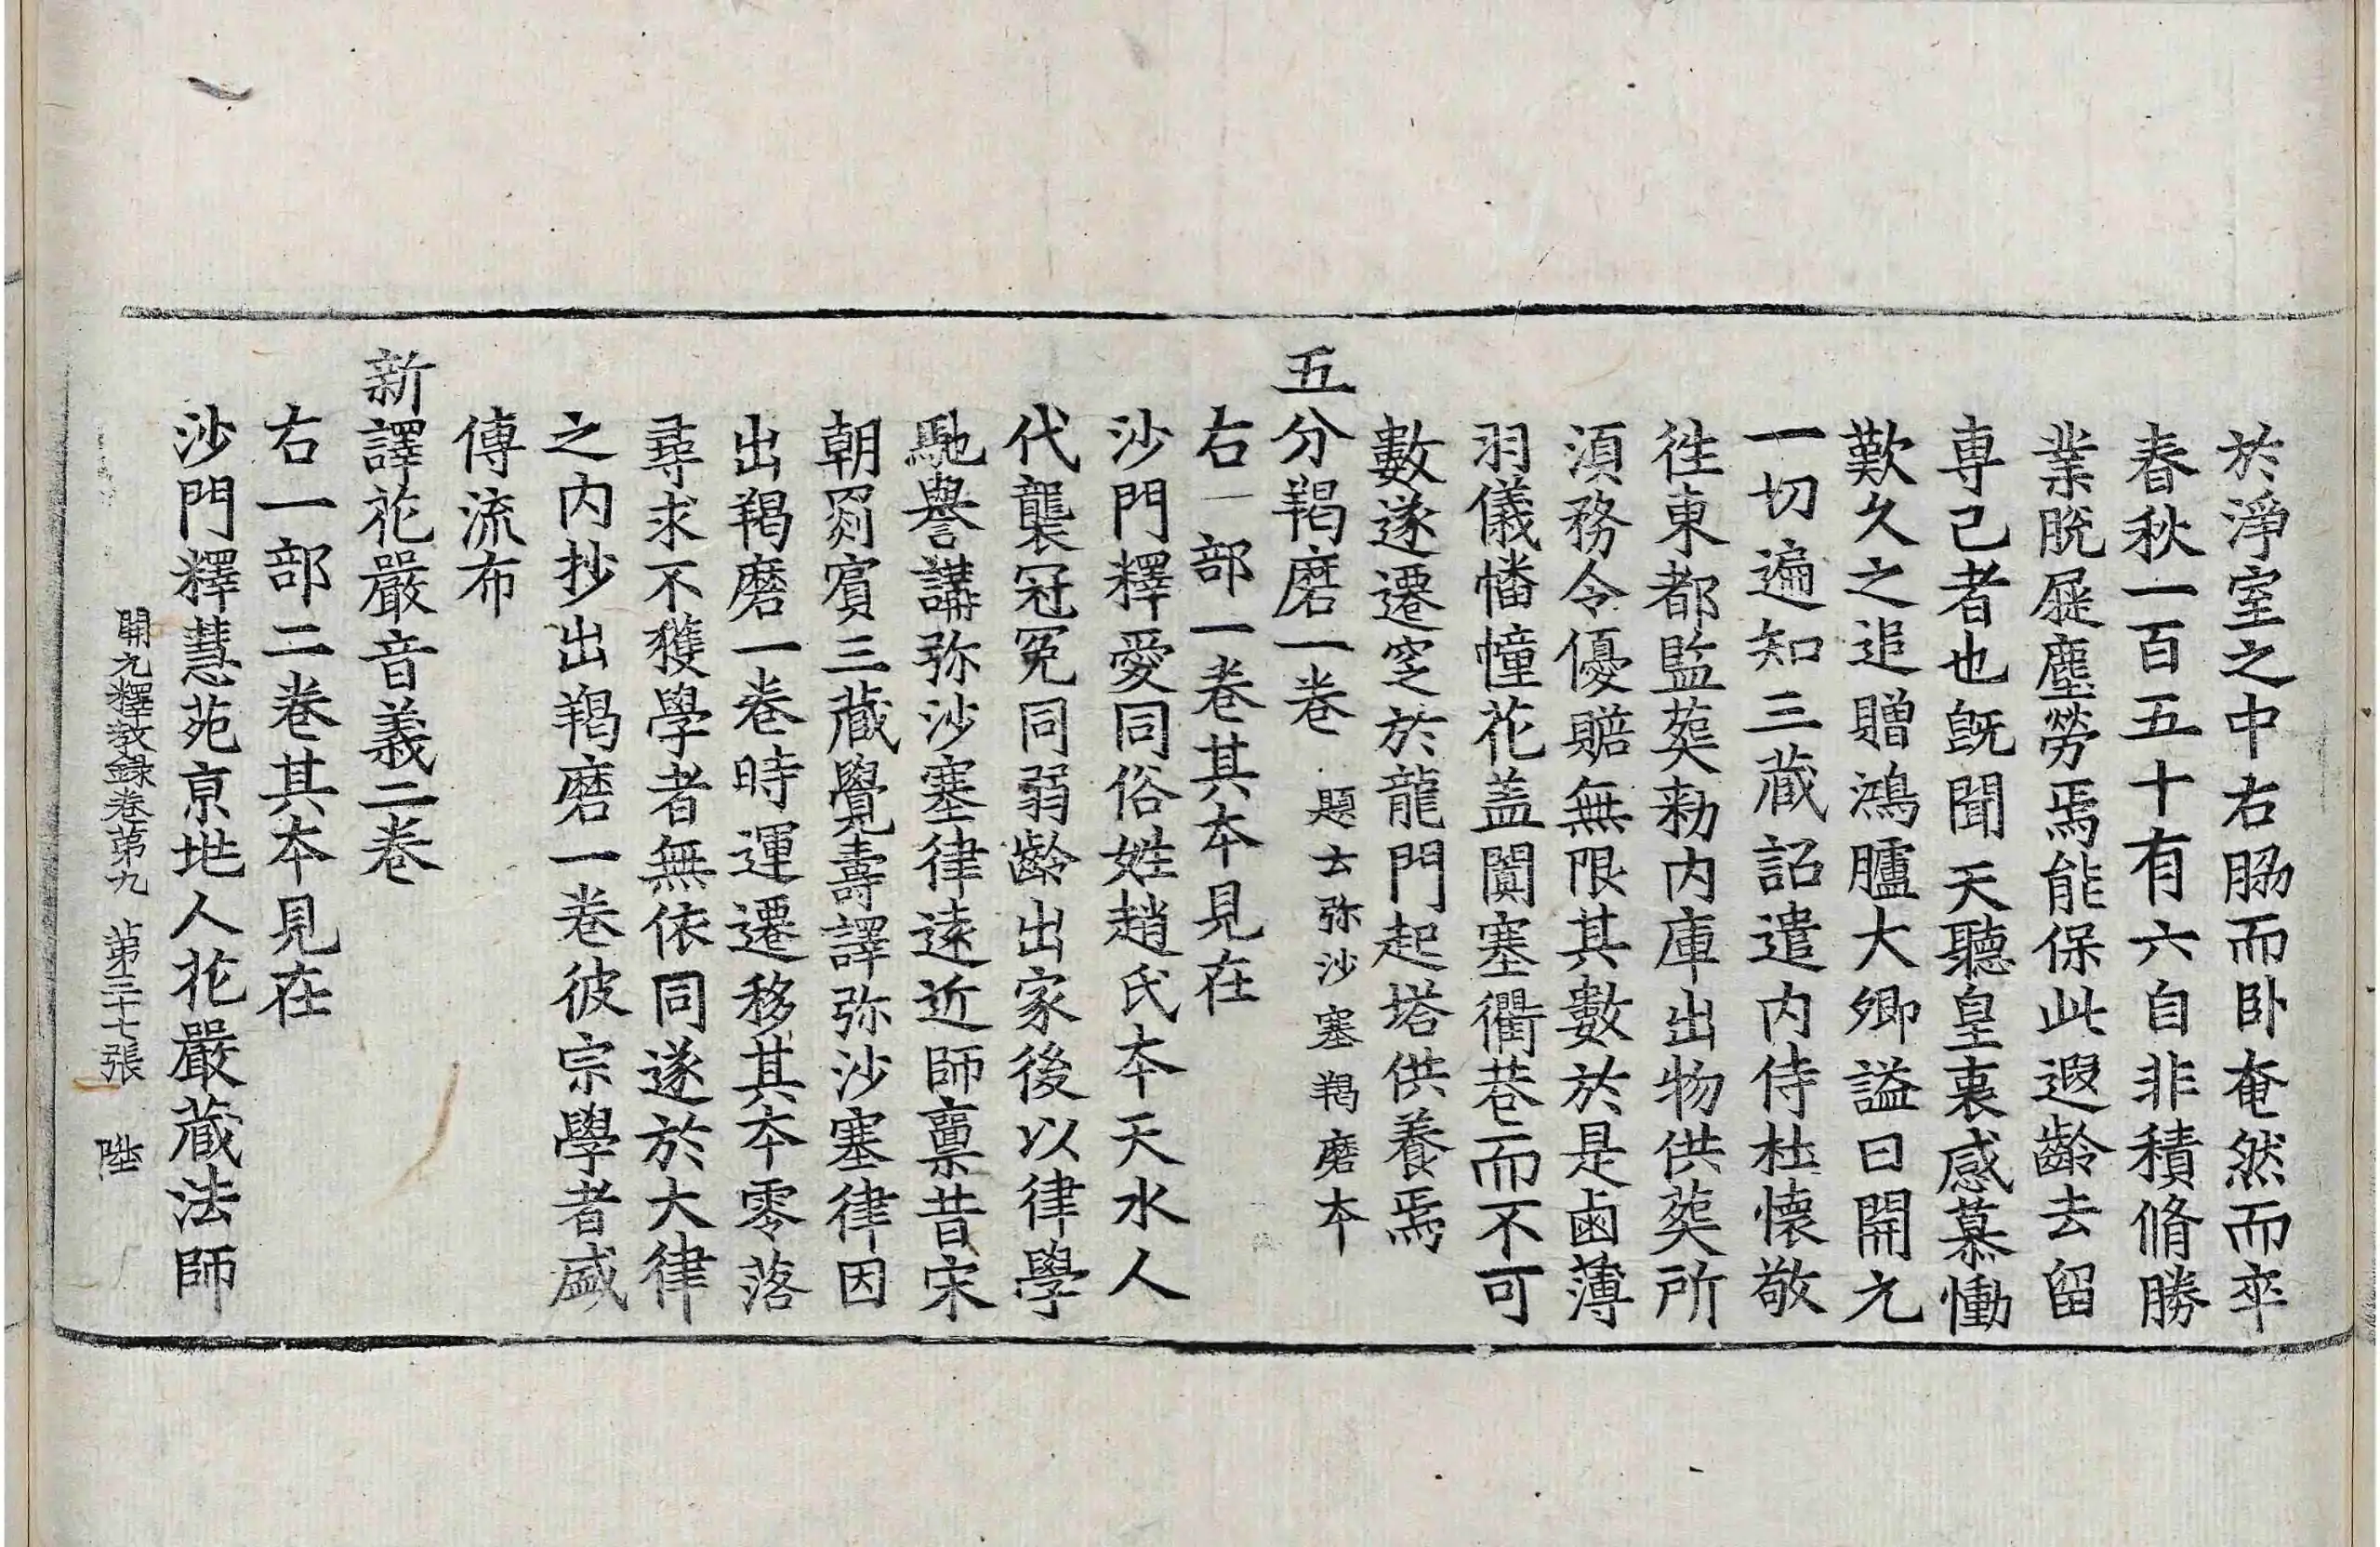 於淨室之中右脇而卧奄然而卒
春秋一百五十有六自非積脩勝
業脫屣塵勞焉能保此遐齡去留
専己者也旣聞天聽皇衷感慕慟
歎久之追贈鴻臚大卿謚曰開元
一切遍知三藏詔遣内侍杜懷敬
往東都監葬勑内庫出物供葬所
湏務令優賠無限其數於是鹵薄
羽儀幡幢花盖闐塞衢巷而不可
數遂遷窆於龍門起塔供養焉
五分羯磨一卷 題云弥沙塞羯磨本
右一部一卷其本見在
沙門釋愛同俗姓趙氏本天水人
代襲冠冕同弱齡出家後以律學
馳譽講弥沙塞律遠近師稟昔宋
朝罽賓三藏覺壽譯弥沙塞律因
出羯磨一卷時運遷移其本零落
尋求不獲學者無依同遂於大律
之内抄出羯磨一卷彼宗學者盛
傳流布
新譯花嚴音義二卷
右一部二卷其本見在
沙門釋慧苑京地人花嚴藏法師
開元釋教錄卷第九 第三十七張 陞